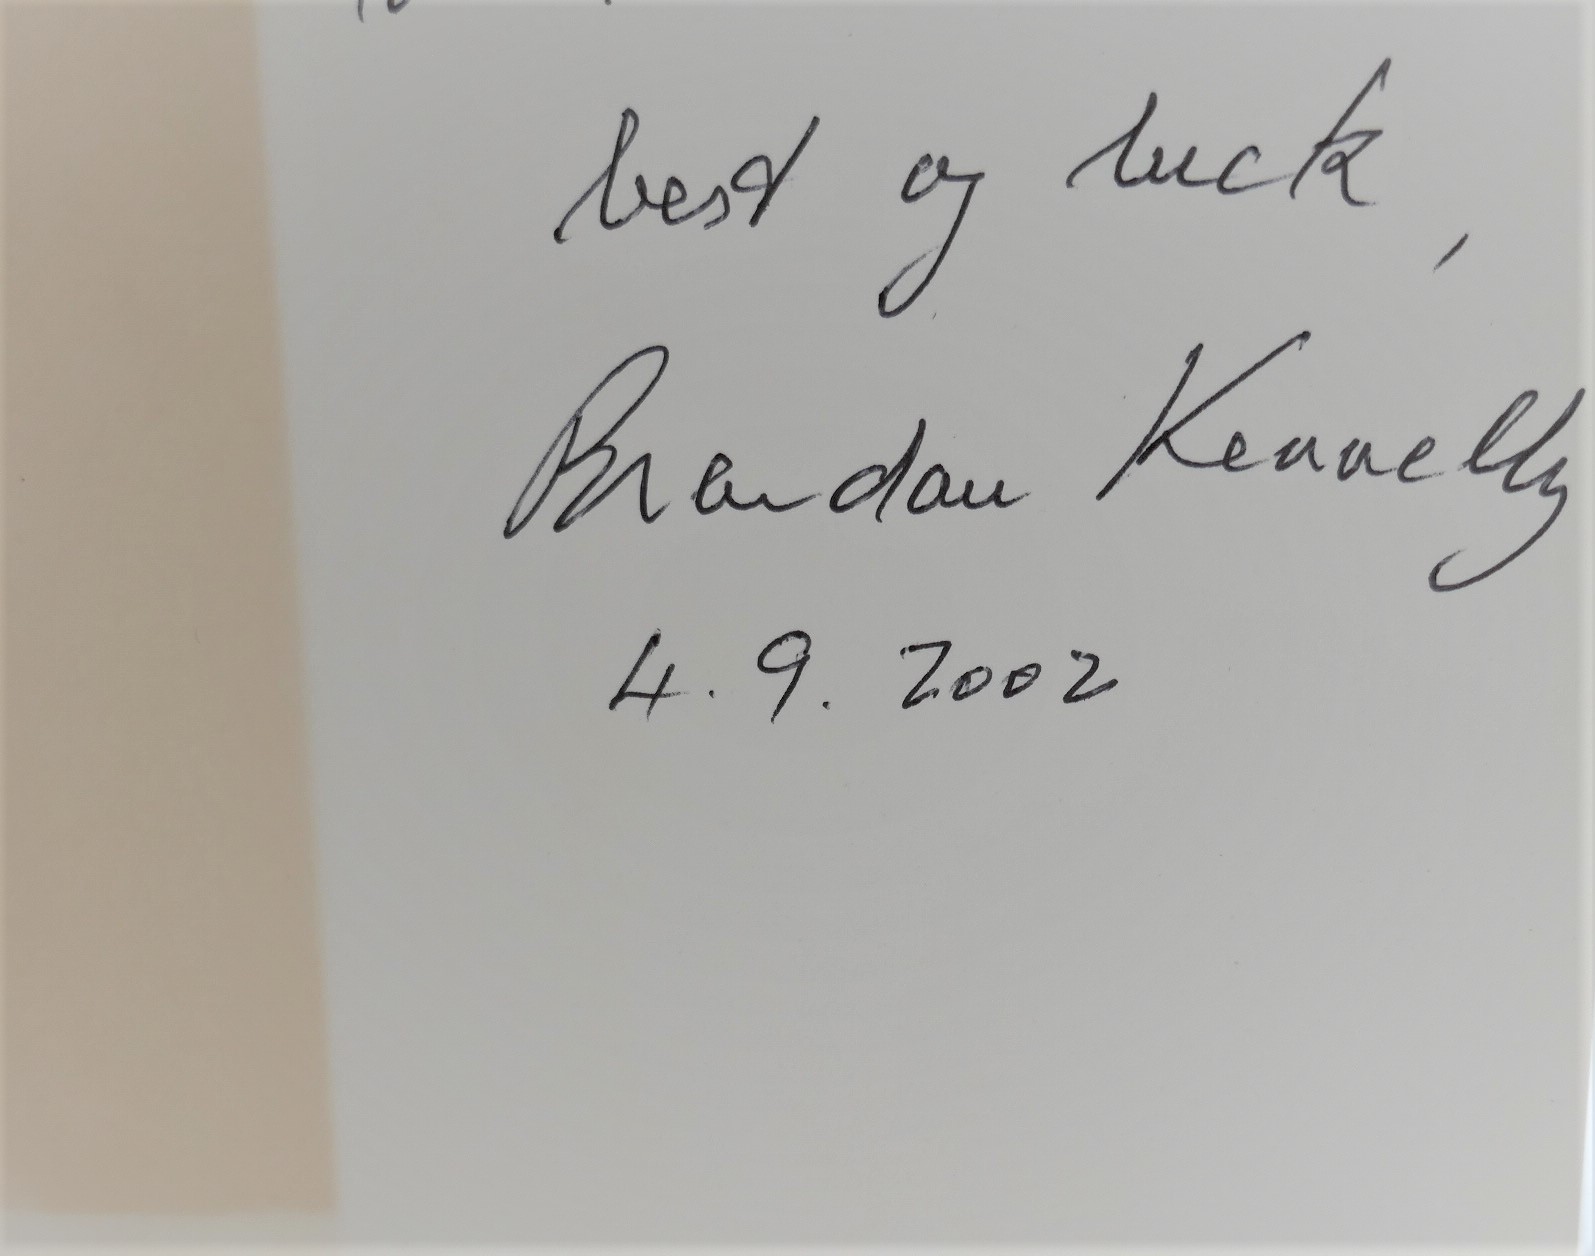 best of luck,
Brendan Kennelly
4.9.2002